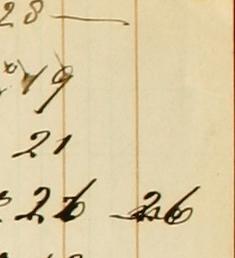 28 —
19
21
26 26